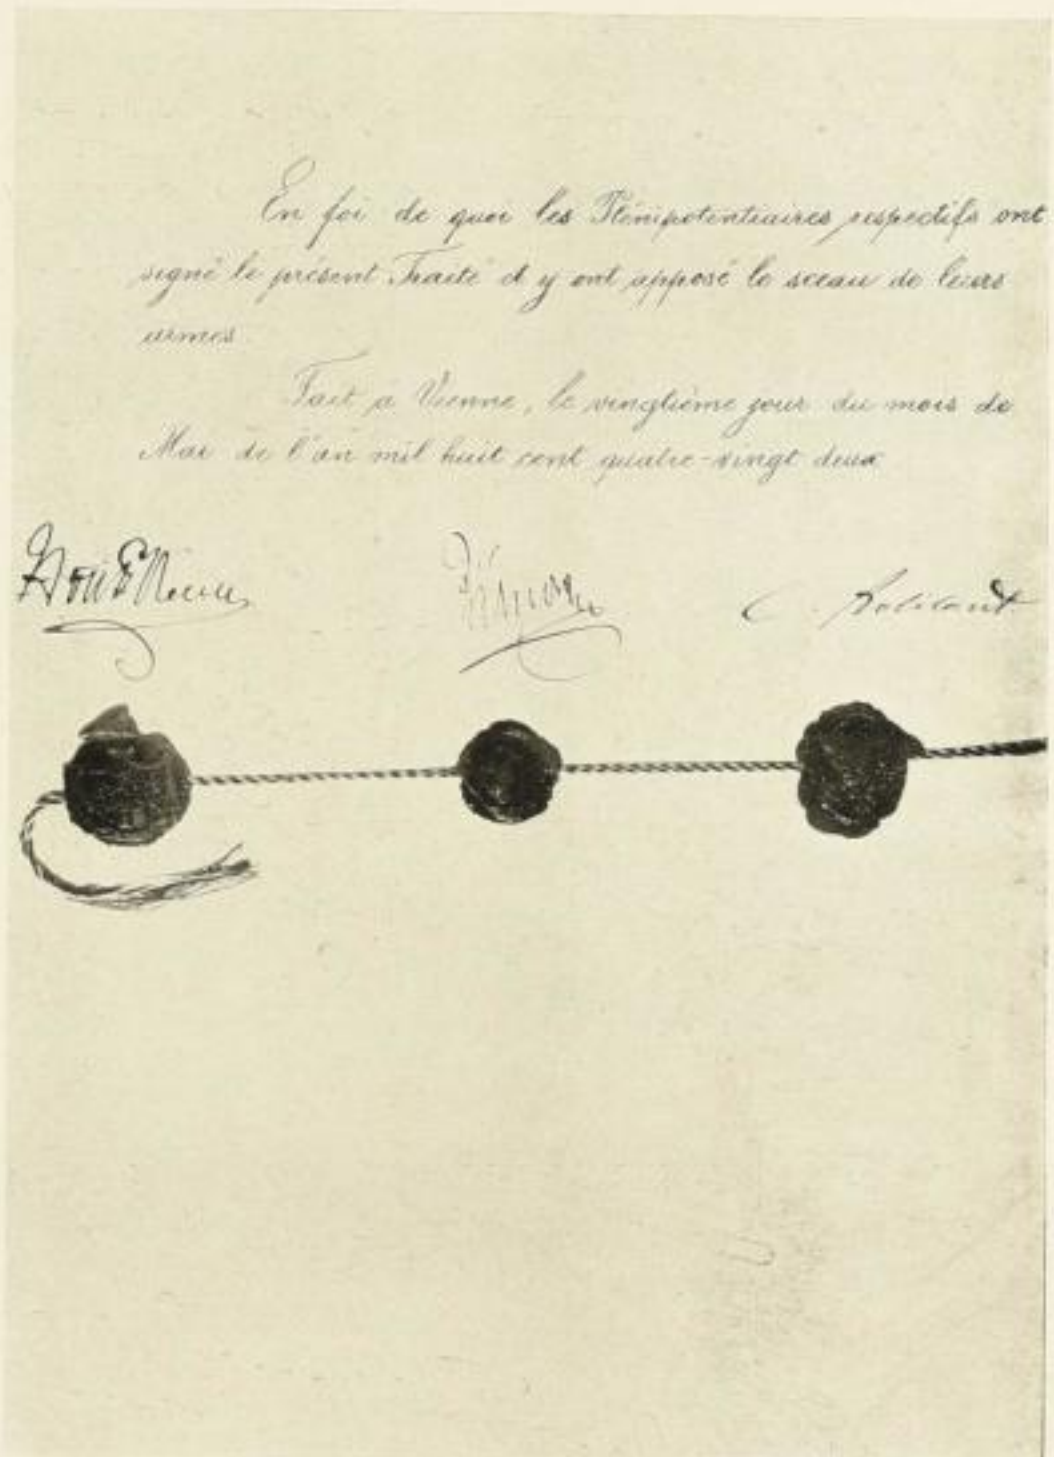 En foi de quoi les Plénipotentiaires respectifs ont
signé le présent Traité et y ont apposé le sceau de leurs
armes.
Fait à Vienne, le vingtième jour du mois de
Mai de l'an mil huit cent quatre-vingt deux
C. Robilant